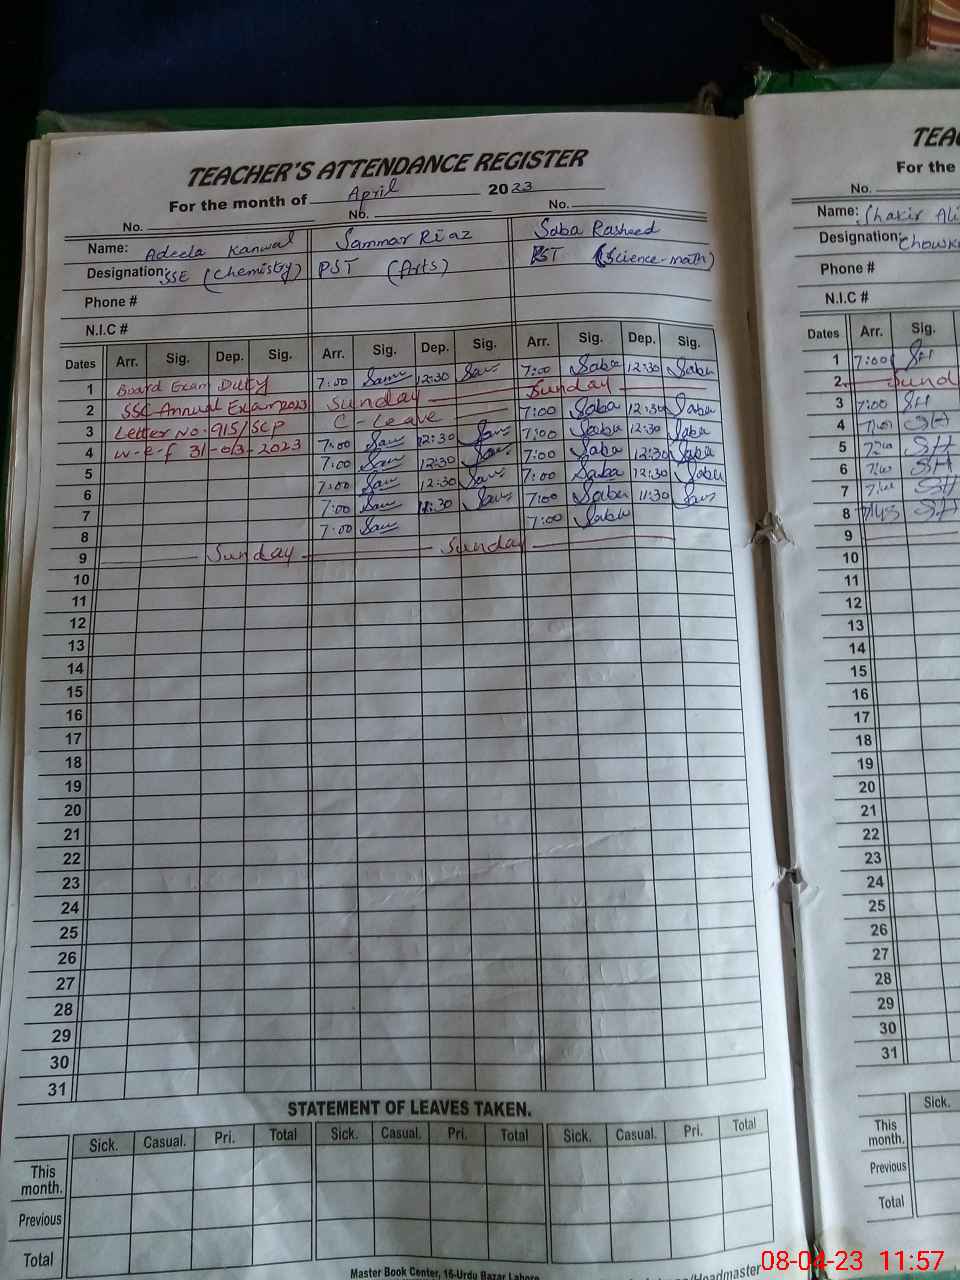 TEACHER'S ATTENDANCE REGISTER
For the month of April 2023
No. No. No.
Name: Adeela Kanwal Sammar Riaz Saba Rasheed
Designation: SSE (Chemistry) PST (Arts) PST (Science-math)
Phone #
N.I.C #
Dates Arr. Sig. Dep. Sig. Arr. Sig. Dep. Sig. Arr. Sig. Dep. Sig.
1 Board Exam Duty 7:00 Sam 12:30 Sam 7:00 Saba 12:30 Saba
2 SSC Annual Exam 2023 Sunday Sunday
3 Letter No. 915/SCP C-Leave 7:00 Saba 12:30 Saba
4 w-e-f 31-03-2023 7:00 Sam 12:30 Sam 7:00 Saba 12:30 Saba
5 7:00 Sam 12:30 Sam 7:00 Saba 12:30 Saba
6 7:00 Sam 12:30 Sam 7:00 Saba 12:30 Saba
7 7:00 Sam 11:30 Sam 7:00 Saba 11:30 Sam
8 7:00 Sam 7:00 Saba
9 Sunday Sunday
10
11
12
13
14
15
16
17
18
19
20
21
22
23
24
25
26
27
28
29
30
31
STATEMENT OF LEAVES TAKEN.
Sick. Casual. Pri. Total Sick. Casual. Pri. Total Sick. Casual. Pri. Total
This month.
Previous
Total
Master Book Center, 16-Urdu Bazar Lahore
Headmaster
TEA
For the
No.
Name: Shakir Ali
Designation: Chowk
Phone #
N.I.C #
Dates Arr. Sig.
1 7:00 SH
2 Sund
3 7:00 SH
4 7:00 SH
5 7:00 SH
6 7:00 SH
7 7:00 SH
8 SH
9
10
11
12
13
14
15
16
17
18
19
20
21
22
23
24
25
26
27
28
29
30
31
Sick.
This month.
Previous
Total
08-04-23 11:57